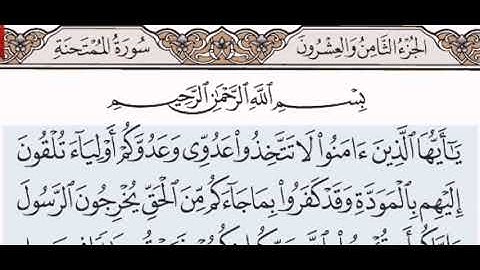 الجزء الثامن والعشرون
سورة الممتحنة
بِسْمِ ٱللَّهِ ٱلرَّحْمَٰنِ ٱلرَّحِيمِ
يَٰٓأَيُّهَا ٱلَّذِينَ ءَامَنُوا۟ لَا تَتَّخِذُوا۟ عَدُوِّى وَعَدُوَّكُمْ أَوْلِيَآءَ تُلْقُونَ
إِلَيْهِم بِٱلْمَوَدَّةِ وَقَدْ كَفَرُوا۟ بِمَا جَآءَكُم مِّنَ ٱلْحَقِّ يُخْرِجُونَ ٱلرَّسُولَ